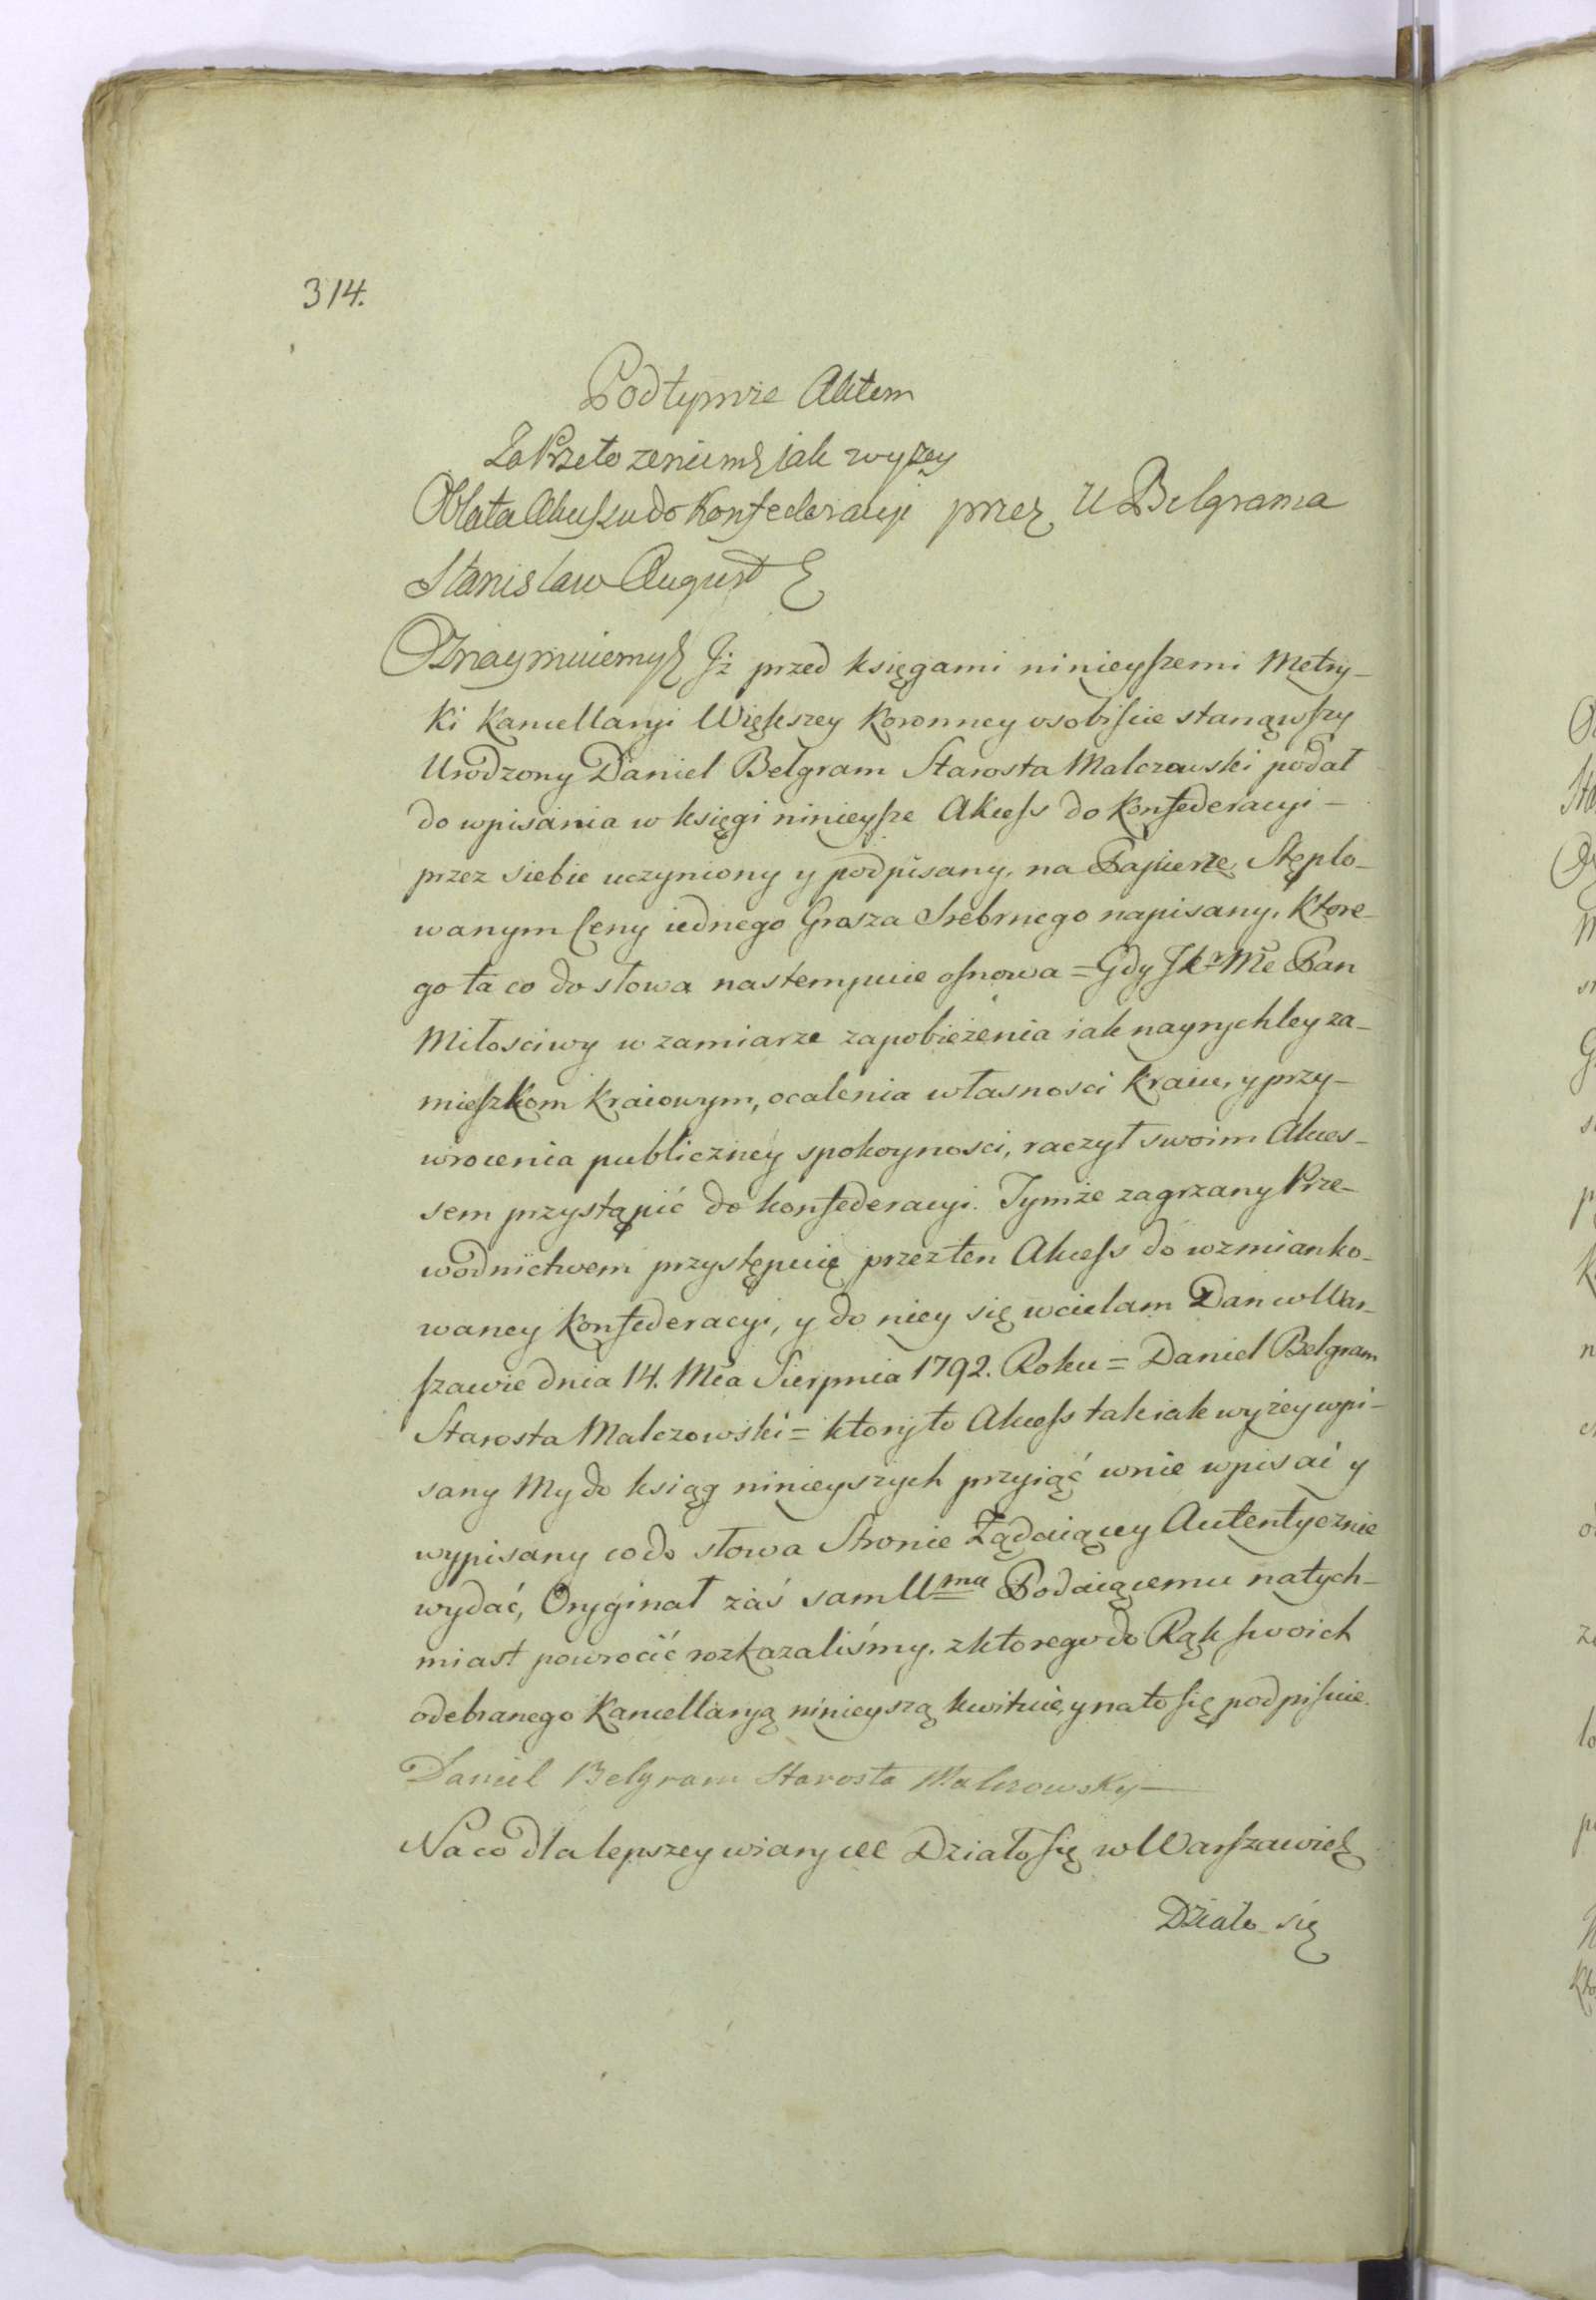 314.
Pod tymże Aktem
Za Przełożeniem &c jak wyzey
Oblata Akcessu do Konfederacyi przez U Belgrama
Stanisław August &c
Oznaymuiemy &c Jż przed księgami ninieyszemi Metry-
ki Kancellaryi Większey Koronney osobiscie stanąwszy
Urodzony Daniel Belgram Starosta Malczowski podał
do wpisania w księgi ninieysze Akcess do Konfederacyi -
przez siebie uczyniony y podpisany, na Papierze Stęplo-
wanym Ceny iednego Grosza Srebrnego napisany, Ktore-
go ta co do słowa nastempuie osnowa = Gdy JKr Mć Pan
Miłosciwy w zamiarze zapobieżenia iak nayrychley za-
mieszkom Kraiowym, ocalenia własnosci Kraiu, y przy-
wrocenia publiczney spokoynosci, raczył swoim Akces-
sem przystąpić do konfederacyi. Tymże zagrzany Prze-
wodnictwem przystępuię przez ten Akcess do wzmianko-
waney Konfederacyi, y do niey się wcielam Dan w War-
szawie dnia 14. Mca Sierpnia 1792. Roku = Daniel Belgram
Starosta Malczowski = ktory to Akcess tak iak wyżey wpi-
sany My do ksiąg ninieyszych przyiąć w nie wpisać y
wypisany co do słowa Stronie Żądaiącey Autentycznie
wydać, Oryginał zaś samUmu Podaiącemu natych-
miast powrocić rozkazaliśmy. z ktorego do Rąk swoich
odebranego Kancellaryą ninieyszą kwituie, y na to się podpisuie.
Daniel Belgram Starosta Malczowsky -
Na co dla lepszey wiary &c Działo się w Warszawie &c
Działo się